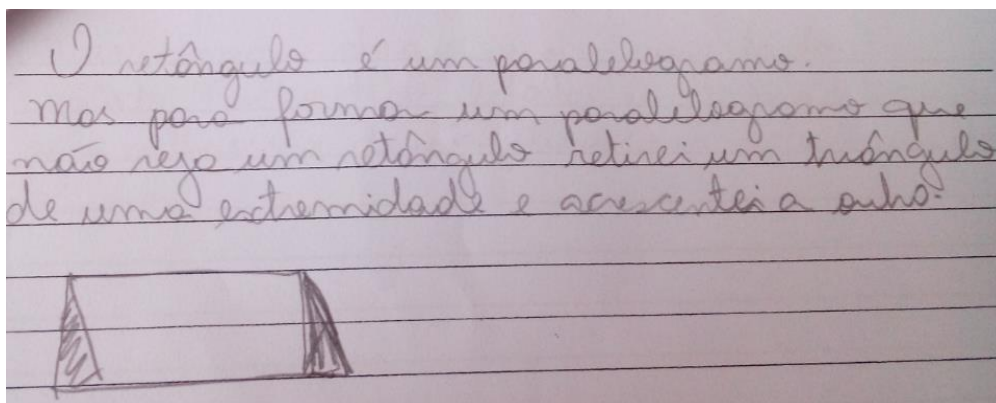 O retângulo é um paralelogramo.
Mas para formar um paralelogramo que
não seja um retângulo retirei um triângulo
de uma extremidade e acrescentei a outro.